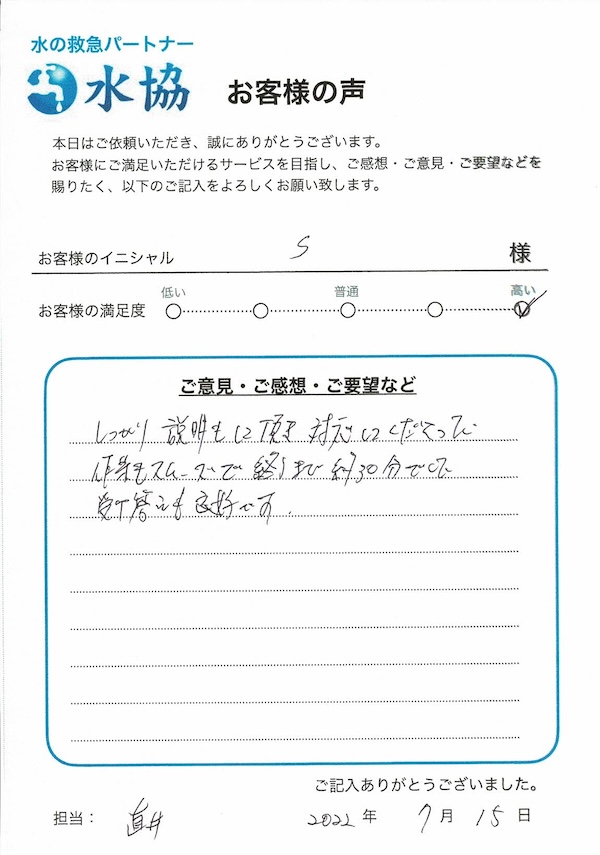 水の救急パートナー
水協 お客様の声
本日はご依頼いただき、誠にありがとうございます。
お客様にご満足いただけるサービスを目指し、ご感想・ご意見・ご要望などを
賜りたく、以下のご記入をよろしくお願い致します。
お客様のイニシャル S 様
低い 普通 高い
お客様の満足度
ご意見・ご感想・ご要望など
しっかり説明もして頂き 対応してくださった
作業もスムーズで終りまで約30分でした
受け答えも良好です.
ご記入ありがとうございました。
担当： 直井 2022 年 7 月 15 日